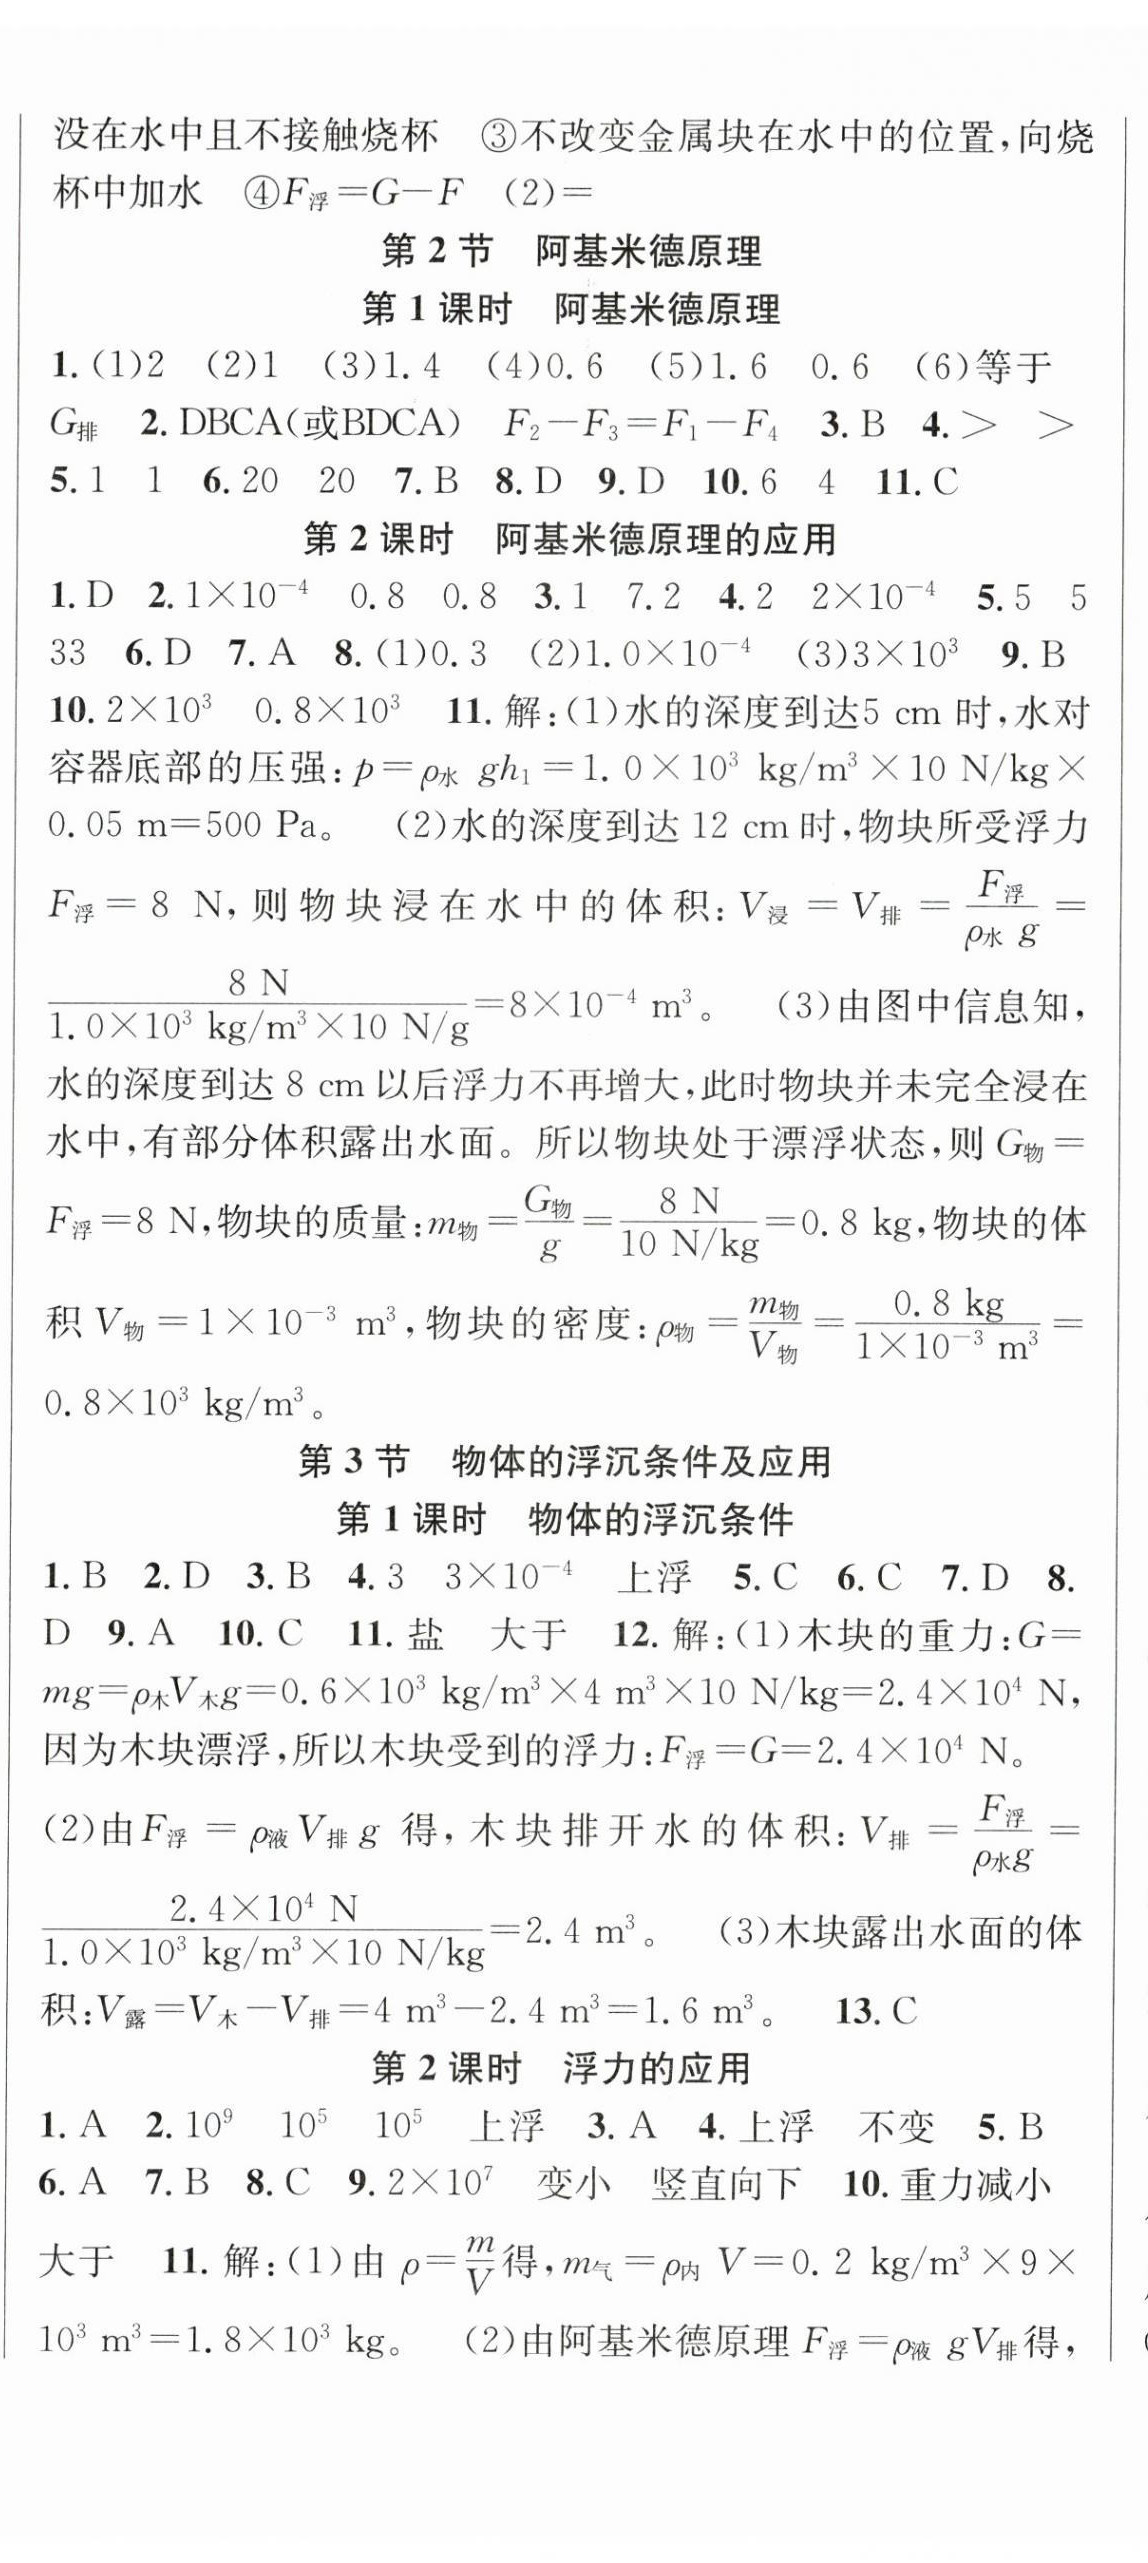 没在水中且不接触烧杯　③不改变金属块在水中的位置,向烧
杯中加水　④F浮=G-F　(2)=
第 2 节　阿基米德原理
第 1 课时　阿基米德原理
1. (1)2　(2)1　(3)1.4　(4)0.6　(5)1.6　0.6　(6)等于
G排　2. DBCA(或BDCA)　F₂-F₃=F₁-F₄　3. B　4. >　>
5. 1　1　6. 20　20　7. B　8. D　9. D　10. 6　4　11. C
第 2 课时　阿基米德原理的应用
1. D　2. 1×10⁻⁴　0.8　0.8　3. 1　7.2　4. 2　2×10⁻⁴　5. 5　5
33　6. D　7. A　8. (1)0.3　(2)1.0×10⁻⁴　(3)3×10³　9. B
10. 2×10³　0.8×10³　11. 解:(1)水的深度到达5 cm 时,水对
容器底部的压强:p=ρ水 gh₁=1.0×10³ kg/m³×10 N/kg×
0.05 m=500 Pa。　(2)水的深度到达 12 cm 时,物块所受浮力
F浮=8 N,则物块浸在水中的体积:V浸=V排=F浮/(ρ水 g)=
8 N/(1.0×10³ kg/m³×10 N/g)=8×10⁻⁴ m³。　(3)由图中信息知,
水的深度到达 8 cm 以后浮力不再增大,此时物块并未完全浸在
水中,有部分体积露出水面。所以物块处于漂浮状态,则 G物=
F浮=8 N,物块的质量:m物=G物/g=8 N/(10 N/kg)=0.8 kg,物块的体
积 V物=1×10⁻³ m³,物块的密度:ρ物=m物/V物=0.8 kg/(1×10⁻³ m³)=
0.8×10³ kg/m³。
第 3 节　物体的浮沉条件及应用
第 1 课时　物体的浮沉条件
1. B　2. D　3. B　4. 3　3×10⁻⁴　上浮　5. C　6. C　7. D　8.
D　9. A　10. C　11. 盐　大于　12. 解:(1)木块的重力:G=
mg=ρ木V木g=0.6×10³ kg/m³×4 m³×10 N/kg=2.4×10⁴ N,
因为木块漂浮,所以木块受到的浮力:F浮=G=2.4×10⁴ N。
(2)由F浮=ρ液V排g 得,木块排开水的体积:V排=F浮/(ρ水g)=
2.4×10⁴ N/(1.0×10³ kg/m³×10 N/kg)=2.4 m³。　(3)木块露出水面的体
积:V露=V木-V排=4 m³-2.4 m³=1.6 m³。　13. C
第 2 课时　浮力的应用
1. A　2. 10⁹　10⁵　10⁵　上浮　3. A　4. 上浮　不变　5. B
6. A　7. B　8. C　9. 2×10⁷　变小　竖直向下　10. 重力减小
大于　11. 解:(1)由 ρ=m/V得,m气=ρ内 V=0.2 kg/m³×9×
10³ m³=1.8×10³ kg。　(2)由阿基米德原理 F浮=ρ液 gV排得,